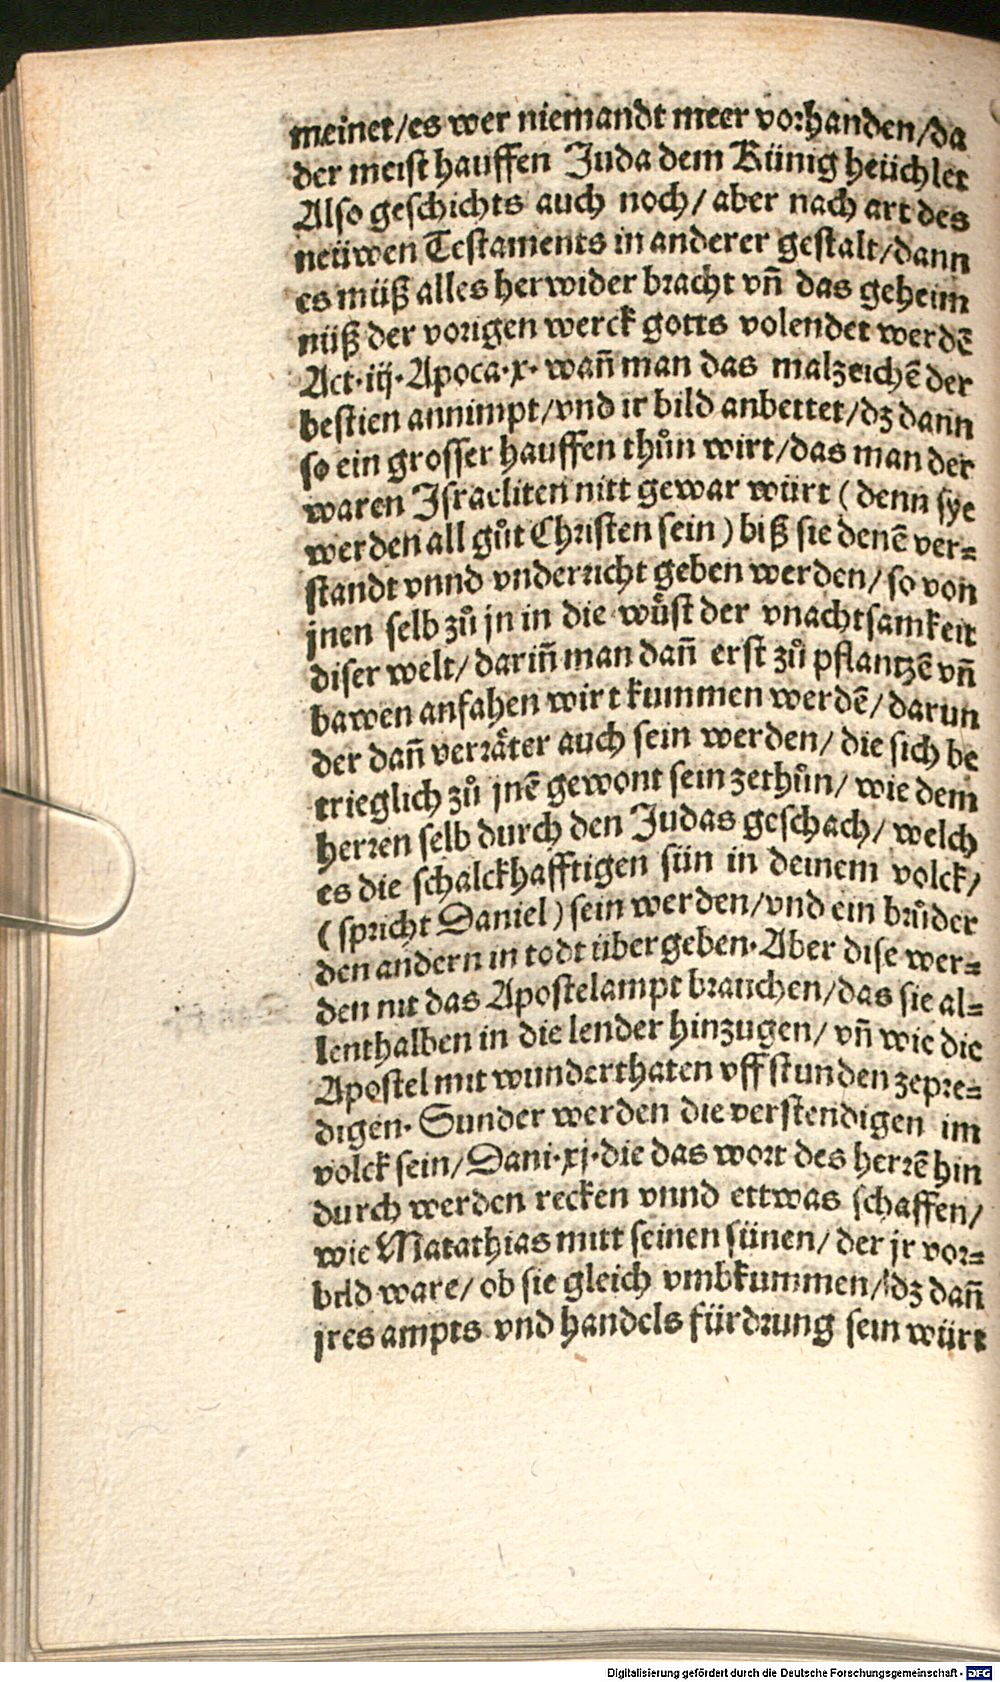 meinet/es wer niemandt meer vorhanden/da
der meist hauffen Juda dem Künig heüchlet
Also geschichts auch noch/ aber nach art des
neüwen Testaments in anderer gestalt/dann
es müß alles herwider bracht vñ das geheim
nüß der vorigen werck gotts volendet werdẽ
Act·iij·Apoca·x· wañ man das malzeichẽ der
bestien annimpt/vnd ir bild anbettet/dz dann
so ein grosser hauffen thůn wirt/das man der
waren Israeliten nitt gewar würt (denn sye
werden all gůt Christen sein) biß sie denẽ ver⸗
standt vnnd vnderricht geben werden/so von
jnen selb zů jn in die wůst der vnachtsamkeit
diser welt/dariñ man dañ erst zů pflantzẽ vñ
bawen anfahen wirt kummen werdẽ/darun
der dañ verräter auch sein werden/ die sich be
trieglich zů jnẽ gewont sein zethůn/ wie dem
herren selb durch den Judas geschach/ welch
es die schalckhafftigen sün in deinem volck/
(spricht Daniel) sein werden/vnd ein brůder
den andern in todt übergeben·Aber dise wer⸗
den nit das Apostelampt brauchen/das sie al⸗
lenthalben in die lender hinzugen/ vñ wie die
Apostel mit wunderthaten vff stunden zepre⸗
digen· Sunder werden die verstendigen im
volck sein/Dani·xj·die das wort des herrẽ hin
durch werden recken vnnd ettwas schaffen/
wie Matathias mitt seinen sünen/ der jr vor⸗
bild ware/ ob sie gleich vmbkummen/dz dañ
jres ampts vnd handels fürdrung sein würt
Digitalisierung gefördert durch die Deutsche Forschungsgemeinschaft - DFG